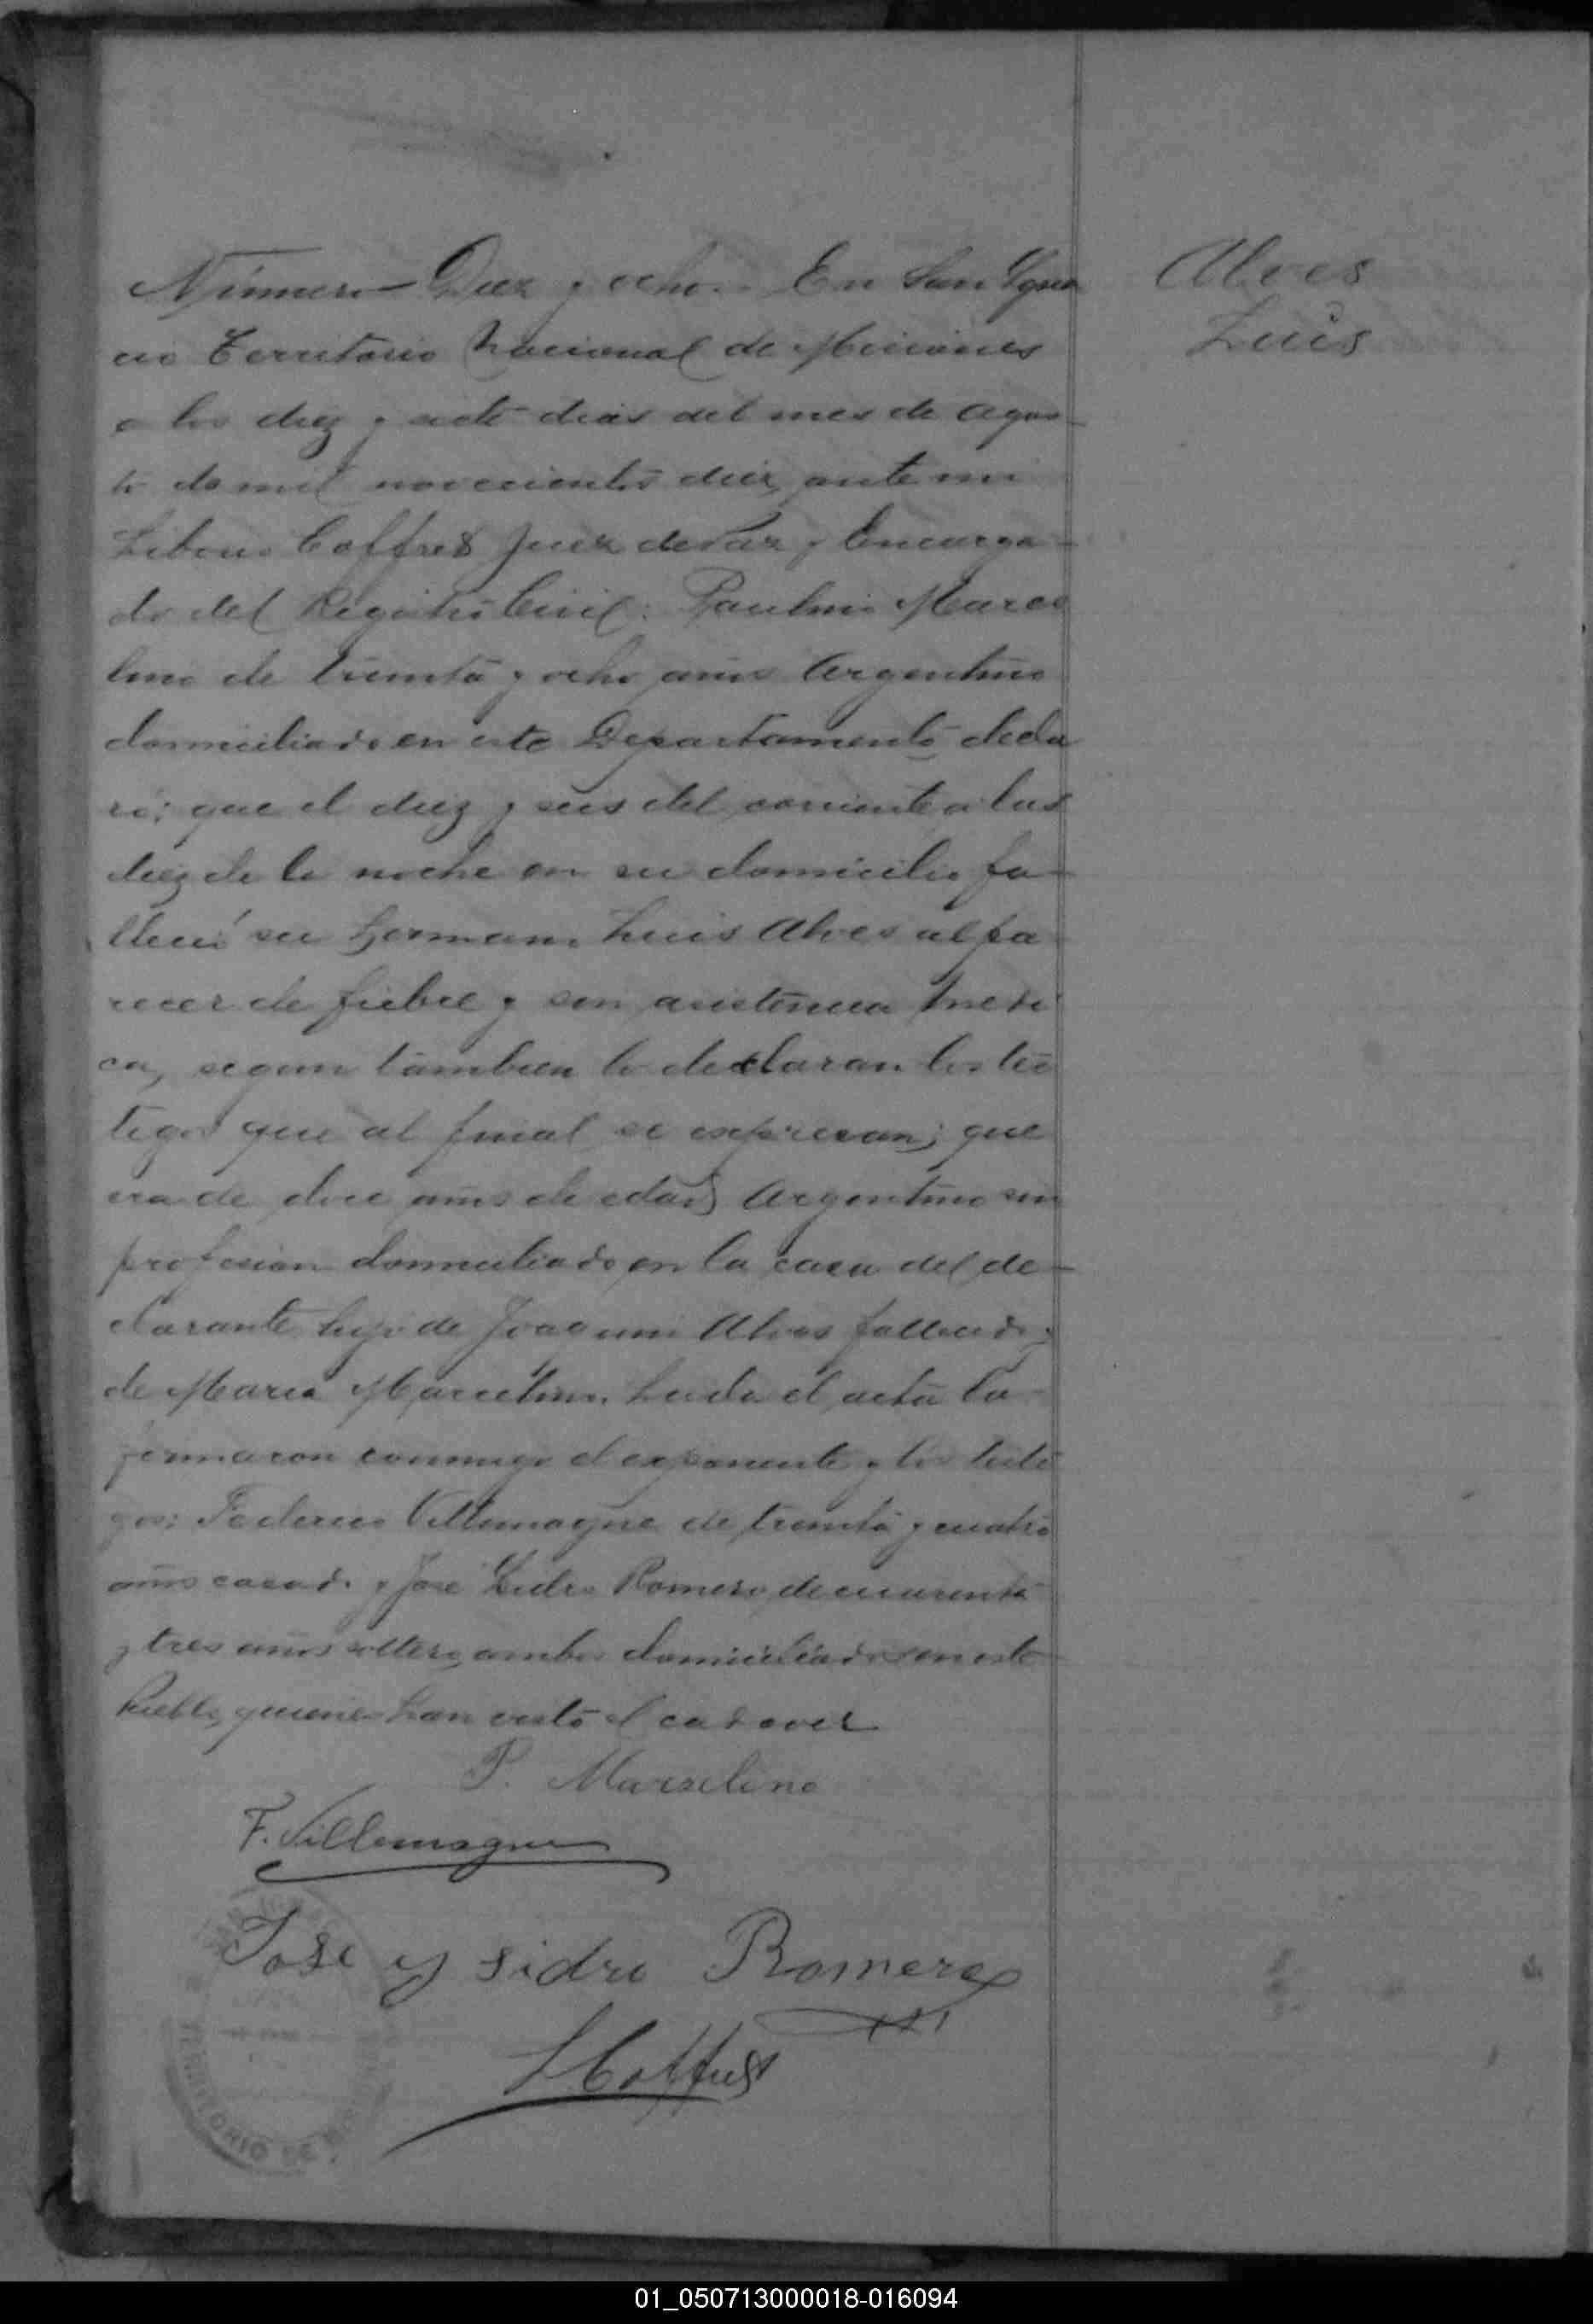 Número Diez y ocho. En San Ygna
cio Territorio Nacional de Misiones
a los diez y siete dias del mes de Agos-
to de mil novecientos diez, ante mi
Liborio Coffres Juez de Paz y Encarga-
do del Registro Civil: Paulino Marce
lino de treinta y ocho años Argentino
domiciliado en este Departamento decla
ró: que el diez y seis del corriente a las
diez de la noche en su domicilio fa-
lleció su hermano Luis Alves al pa
recer de fiebre y sin asistencia medi
ca, segun tambien lo declaran los tes
tigos que al final se expresan; que
era de doce años de edad, Argentino sin
profesion domiciliado en la casa del de-
clarante, hijo de Joaquin Alves fallecido y
de Maria Marcelino. Leida el acta la
firmaron conmigo el exponente y los testi
gos: Federico Villemagne de treinta y cuatro
años casado y José Ysidro Romero, de cuarenta
y tres años soltero, ambos domiciliados en este
Pueblo, quienes han visto el cadaver
P. Marselino
F. Villemagne
Jose ysidro Romero
Alves
Luis
TERRITORIO DE
01_050713000018-016094